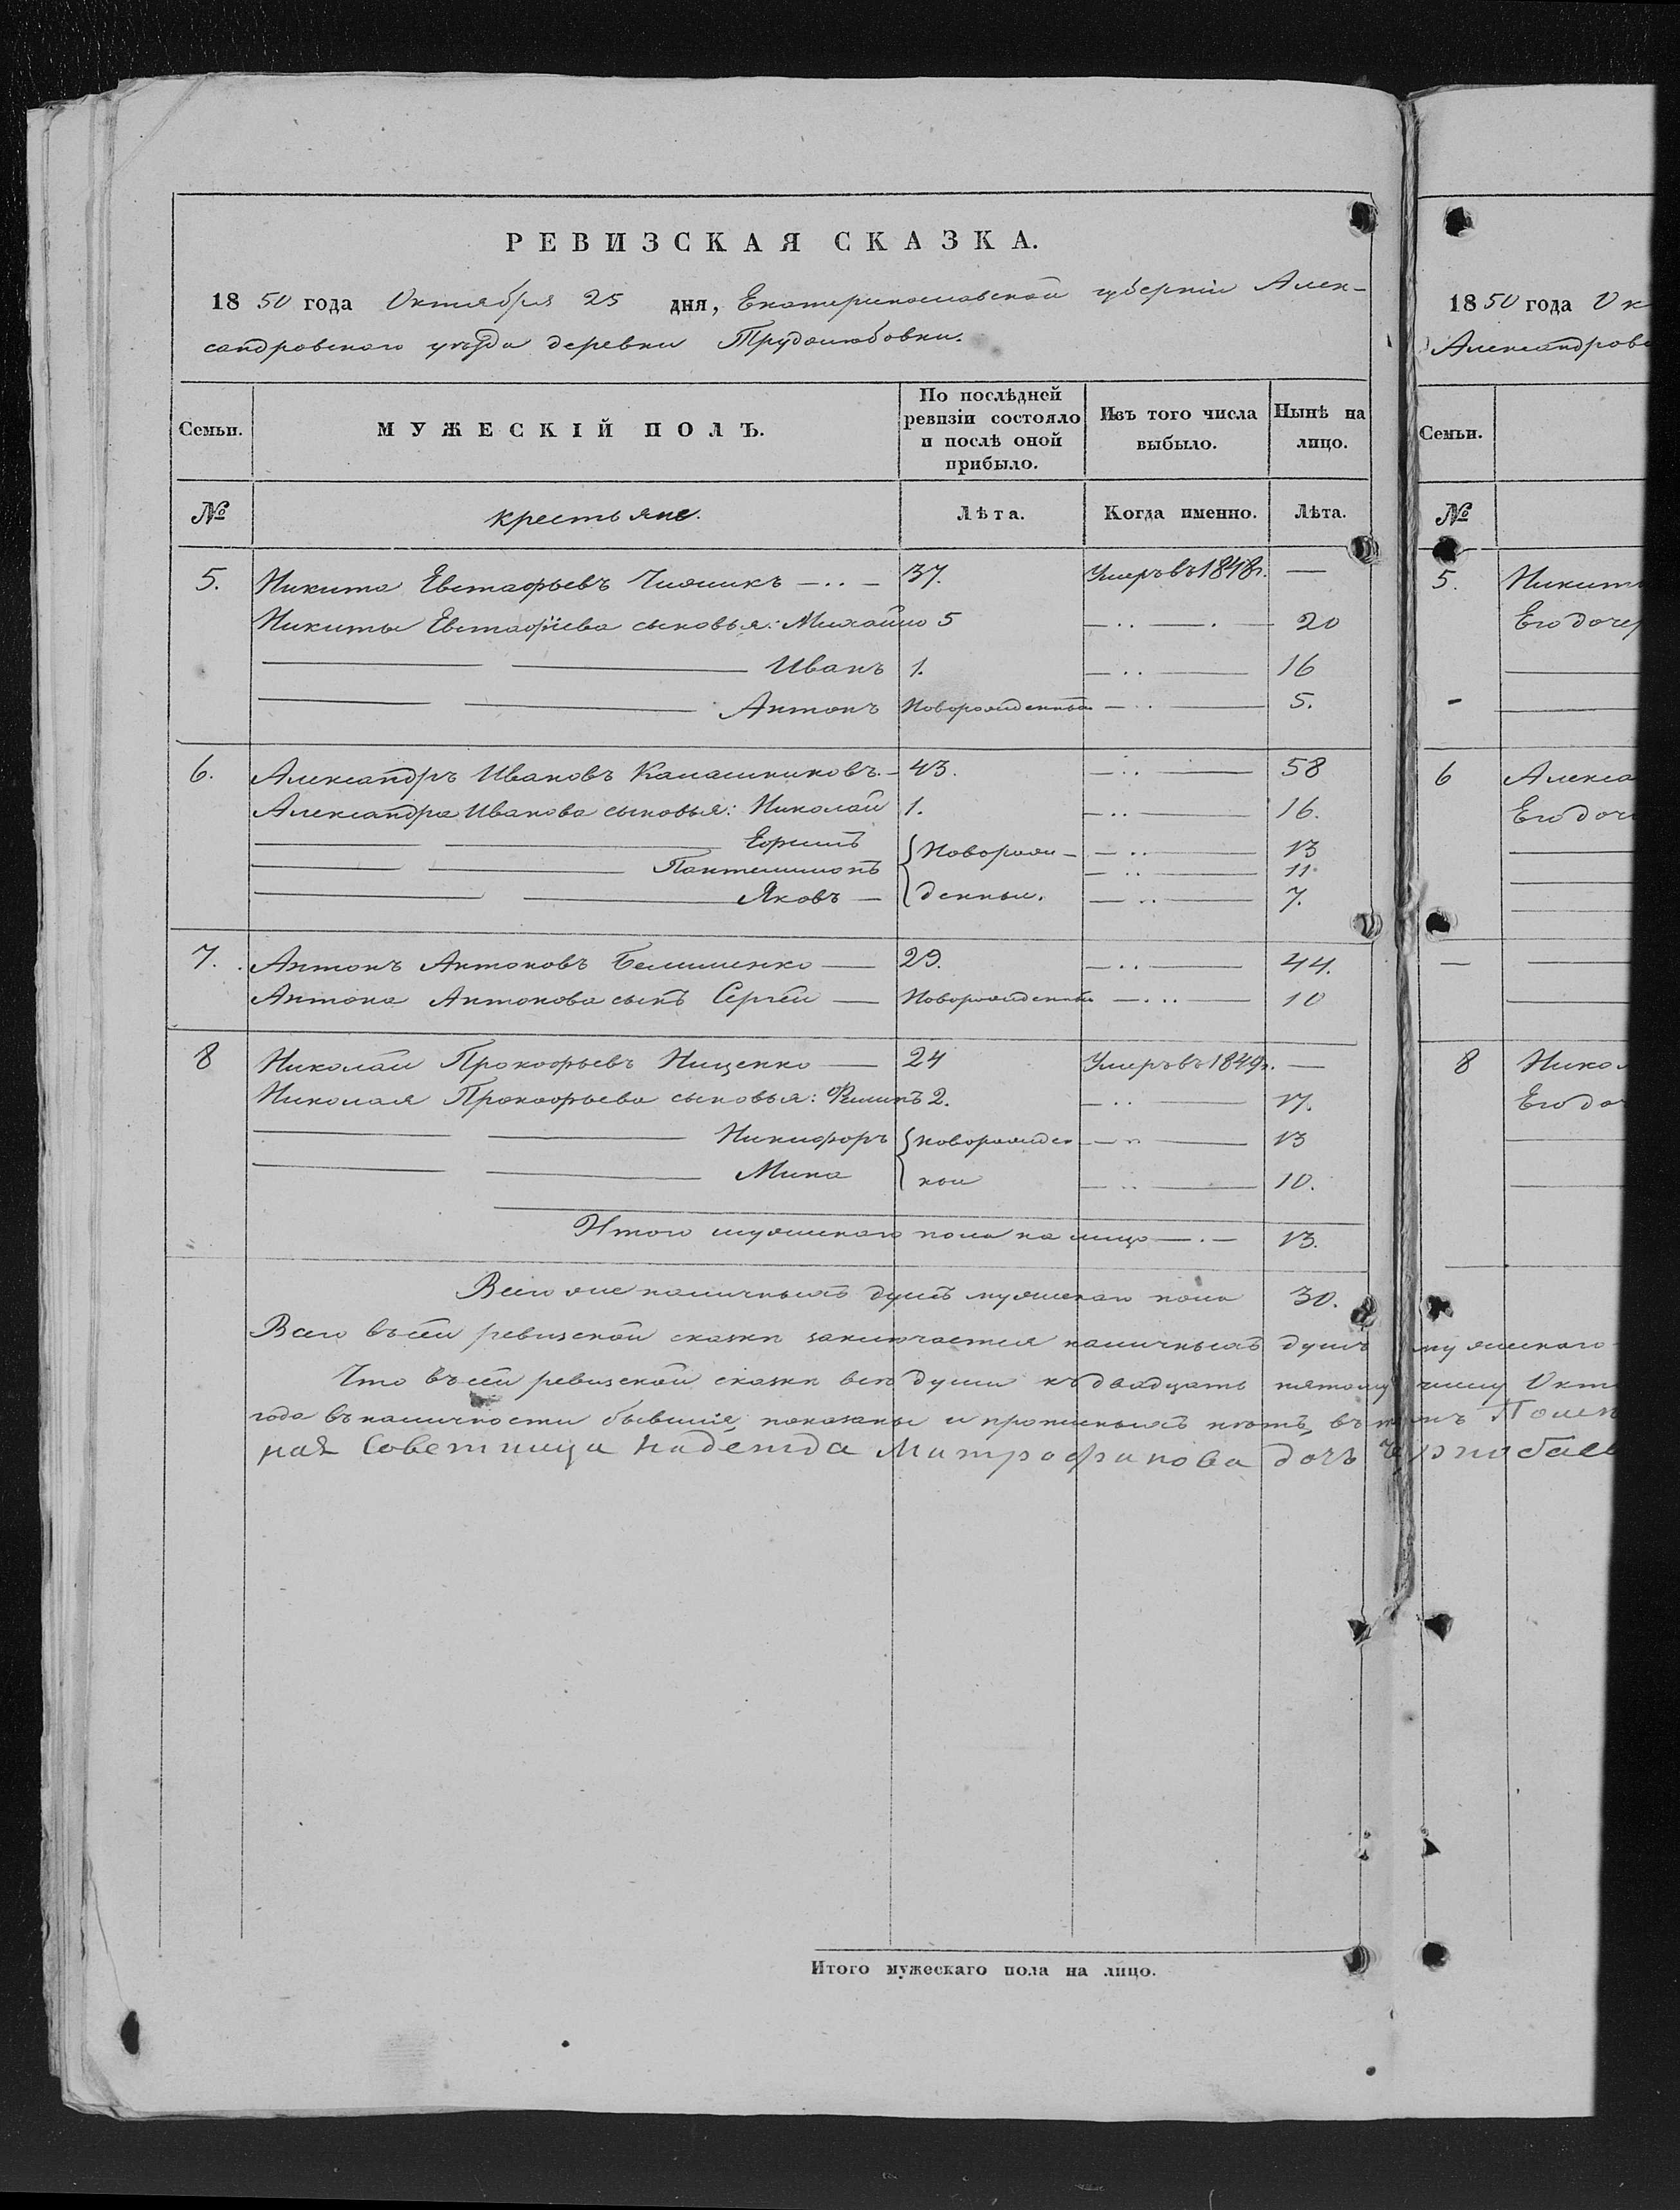 РЕВИЗСКАЯ СКАЗКА.
1850 года Октября 25 дня, Екатеринославской губерніи Алек-
сандровскаго уѣзда деревни Трудолюбовки.
Семьи. МУЖЕСКІЙ ПОЛЪ. По послѣдней ревизіи состояло и послѣ оной прибыло. Изъ того числа выбыло. Нынѣ на лицо.
№ крестьяне. Лѣта. Когда именно. Лѣта.
5. Никита Евстафьевъ Чижикъ — 37. Умеръ въ 1848 г. —
Никиты Евстафіева сыновья: Михайло 5 — 20
Иванъ 1. — 16
Антонъ Новорожденный — 5.
6. Александръ Ивановъ Калашниковъ. — 43. — 58
Александра Иванова сыновья: Николай 1. — 16.
Ефимъ Новорож- — 13
Пантелимонъ — 11.
Яковъ — денные. — 7.
7. Антонъ Антоновъ — 29. — 44.
Антона Антонова сынъ Сергей — Новорожденный — 10
8 Николай Прокофьевъ Нищенко — 24 Умеръ въ 1849 г. —
Николая Прокофьева сыновья: Филипъ 2. — 17.
Никифоръ новорожден — 13
Мина ныи — 10.
Итого мужескаго пола на лицо — 13.
Всего же наличныхъ душъ мужескаго пола 30.
Всего въ сей ревизской сказки заключается наличныхъ душъ мужескаго
Что въ сей ревизской сказки все души къ двадцать пятому числу Окт
года въ наличности бывшія, показаны и прописныхъ нѣтъ, въ томъ Помѣ
ная Советница Надежда Митрофанова дочь
Итого мужескаго пола на лицо.
1850 года Ок
Александровс
Семьи.
№
5. Никит
Его доче
6 Алекса
Его доч
8 Никол
Его до